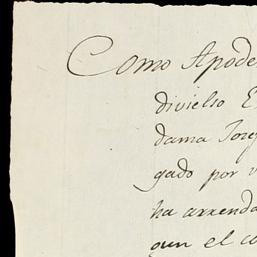 Como Apode
divielso E
dama Jose
gado por v
ha arrenda
gun el co